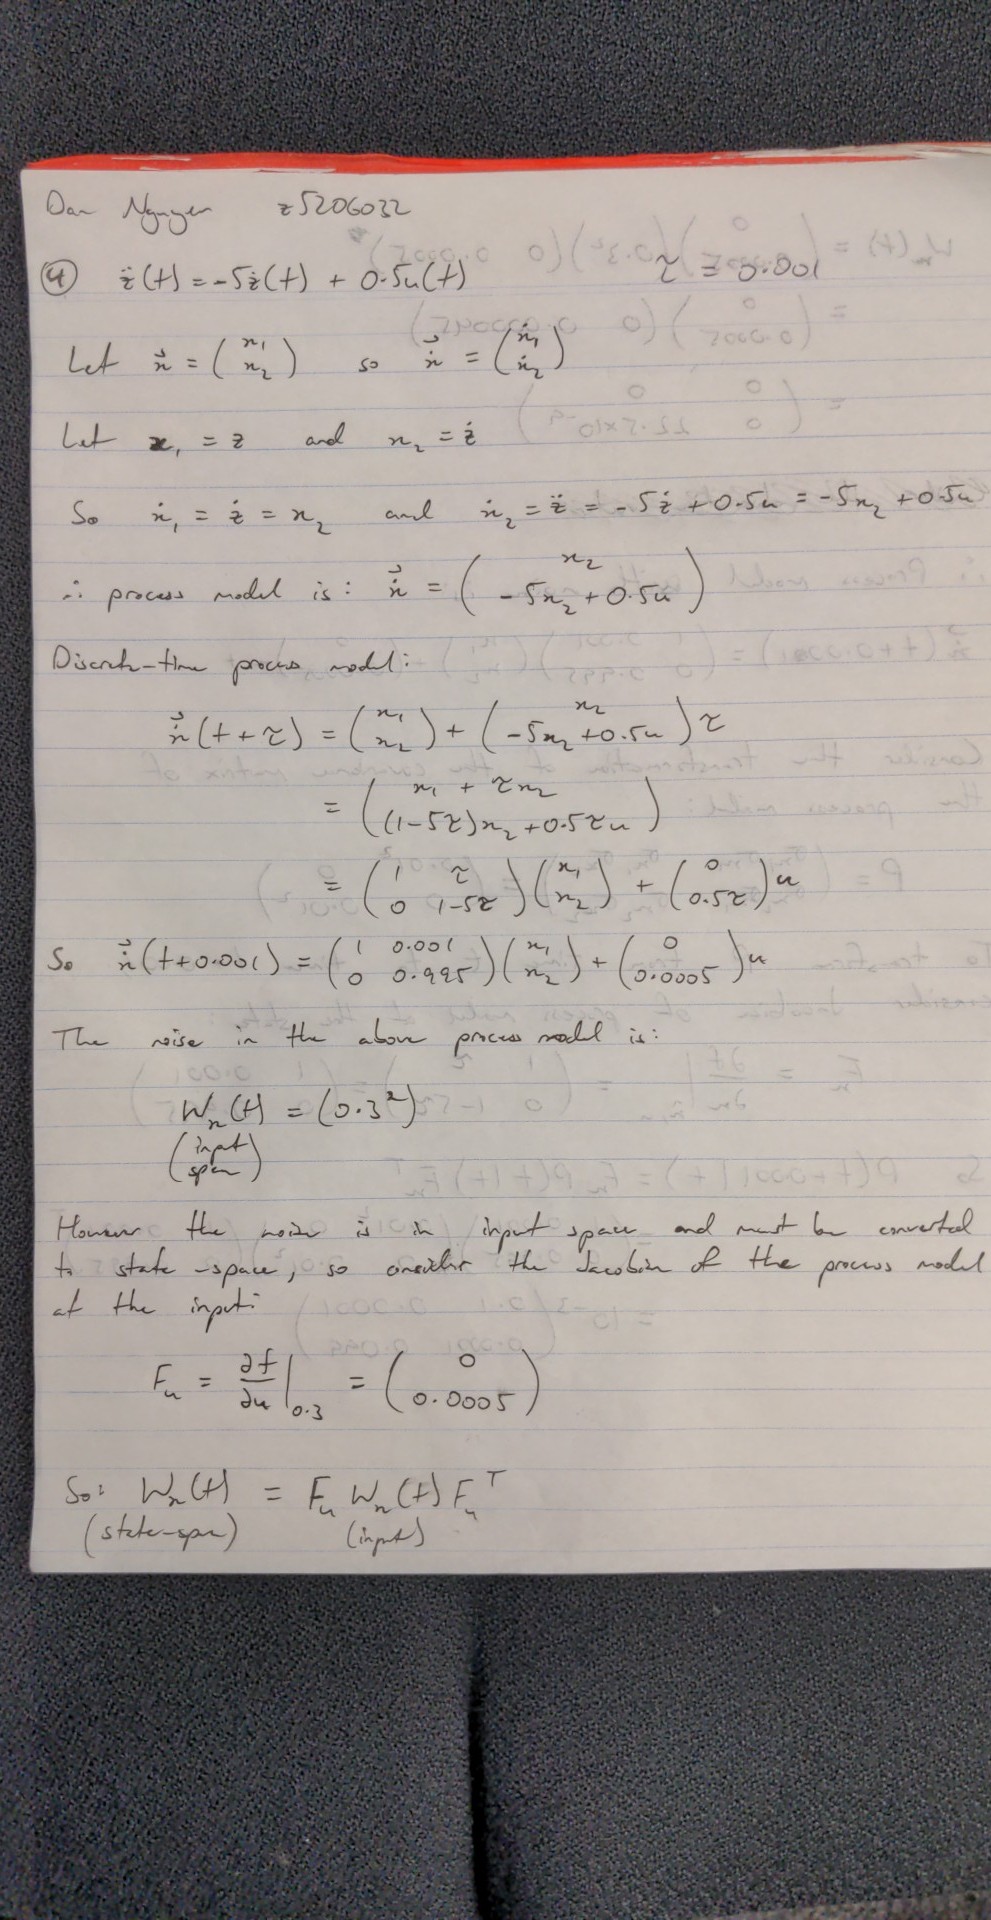 Dan Nguyen z5206032
④ z̈(t) = -5ż(t) + 0.5u(t) τ = 0.001
Let x⃗ = (x₁ x₂) so x⃗̇ = (ẋ₁ ẋ₂)
Let x₁ = z and x₂ = ż
So ẋ₁ = ż = x₂ and ẋ₂ = z̈ = -5ż + 0.5u = -5x₂ + 0.5u
∴ process model is: x⃗̇ = (x₂ -5x₂+0.5u)
Discrete-time process model:
x⃗(t+τ) = (x₁ x₂) + (x₂ -5x₂+0.5u)τ
= (x₁ + τx₂ (1-5τ)x₂+0.5τu)
= (1 τ 0 1-5τ)(x₁ x₂) + (0 0.5τ)u
So x⃗(t+0.001) = (1 0.001 0 0.995)(x₁ x₂) + (0 0.0005)u
The noise in the above process model is:
Wₓ(t) = (0.3²)
(input space)
However the noise is in input space and must be converted
to state-space, so consider the Jacobian of the process model
at the input:
Fᵤ = ∂f/∂u |₀.₃ = (0 0.0005)
So: Wₓ(t) = Fᵤ Wₓ(t) Fᵤᵀ
(state-space) (input)